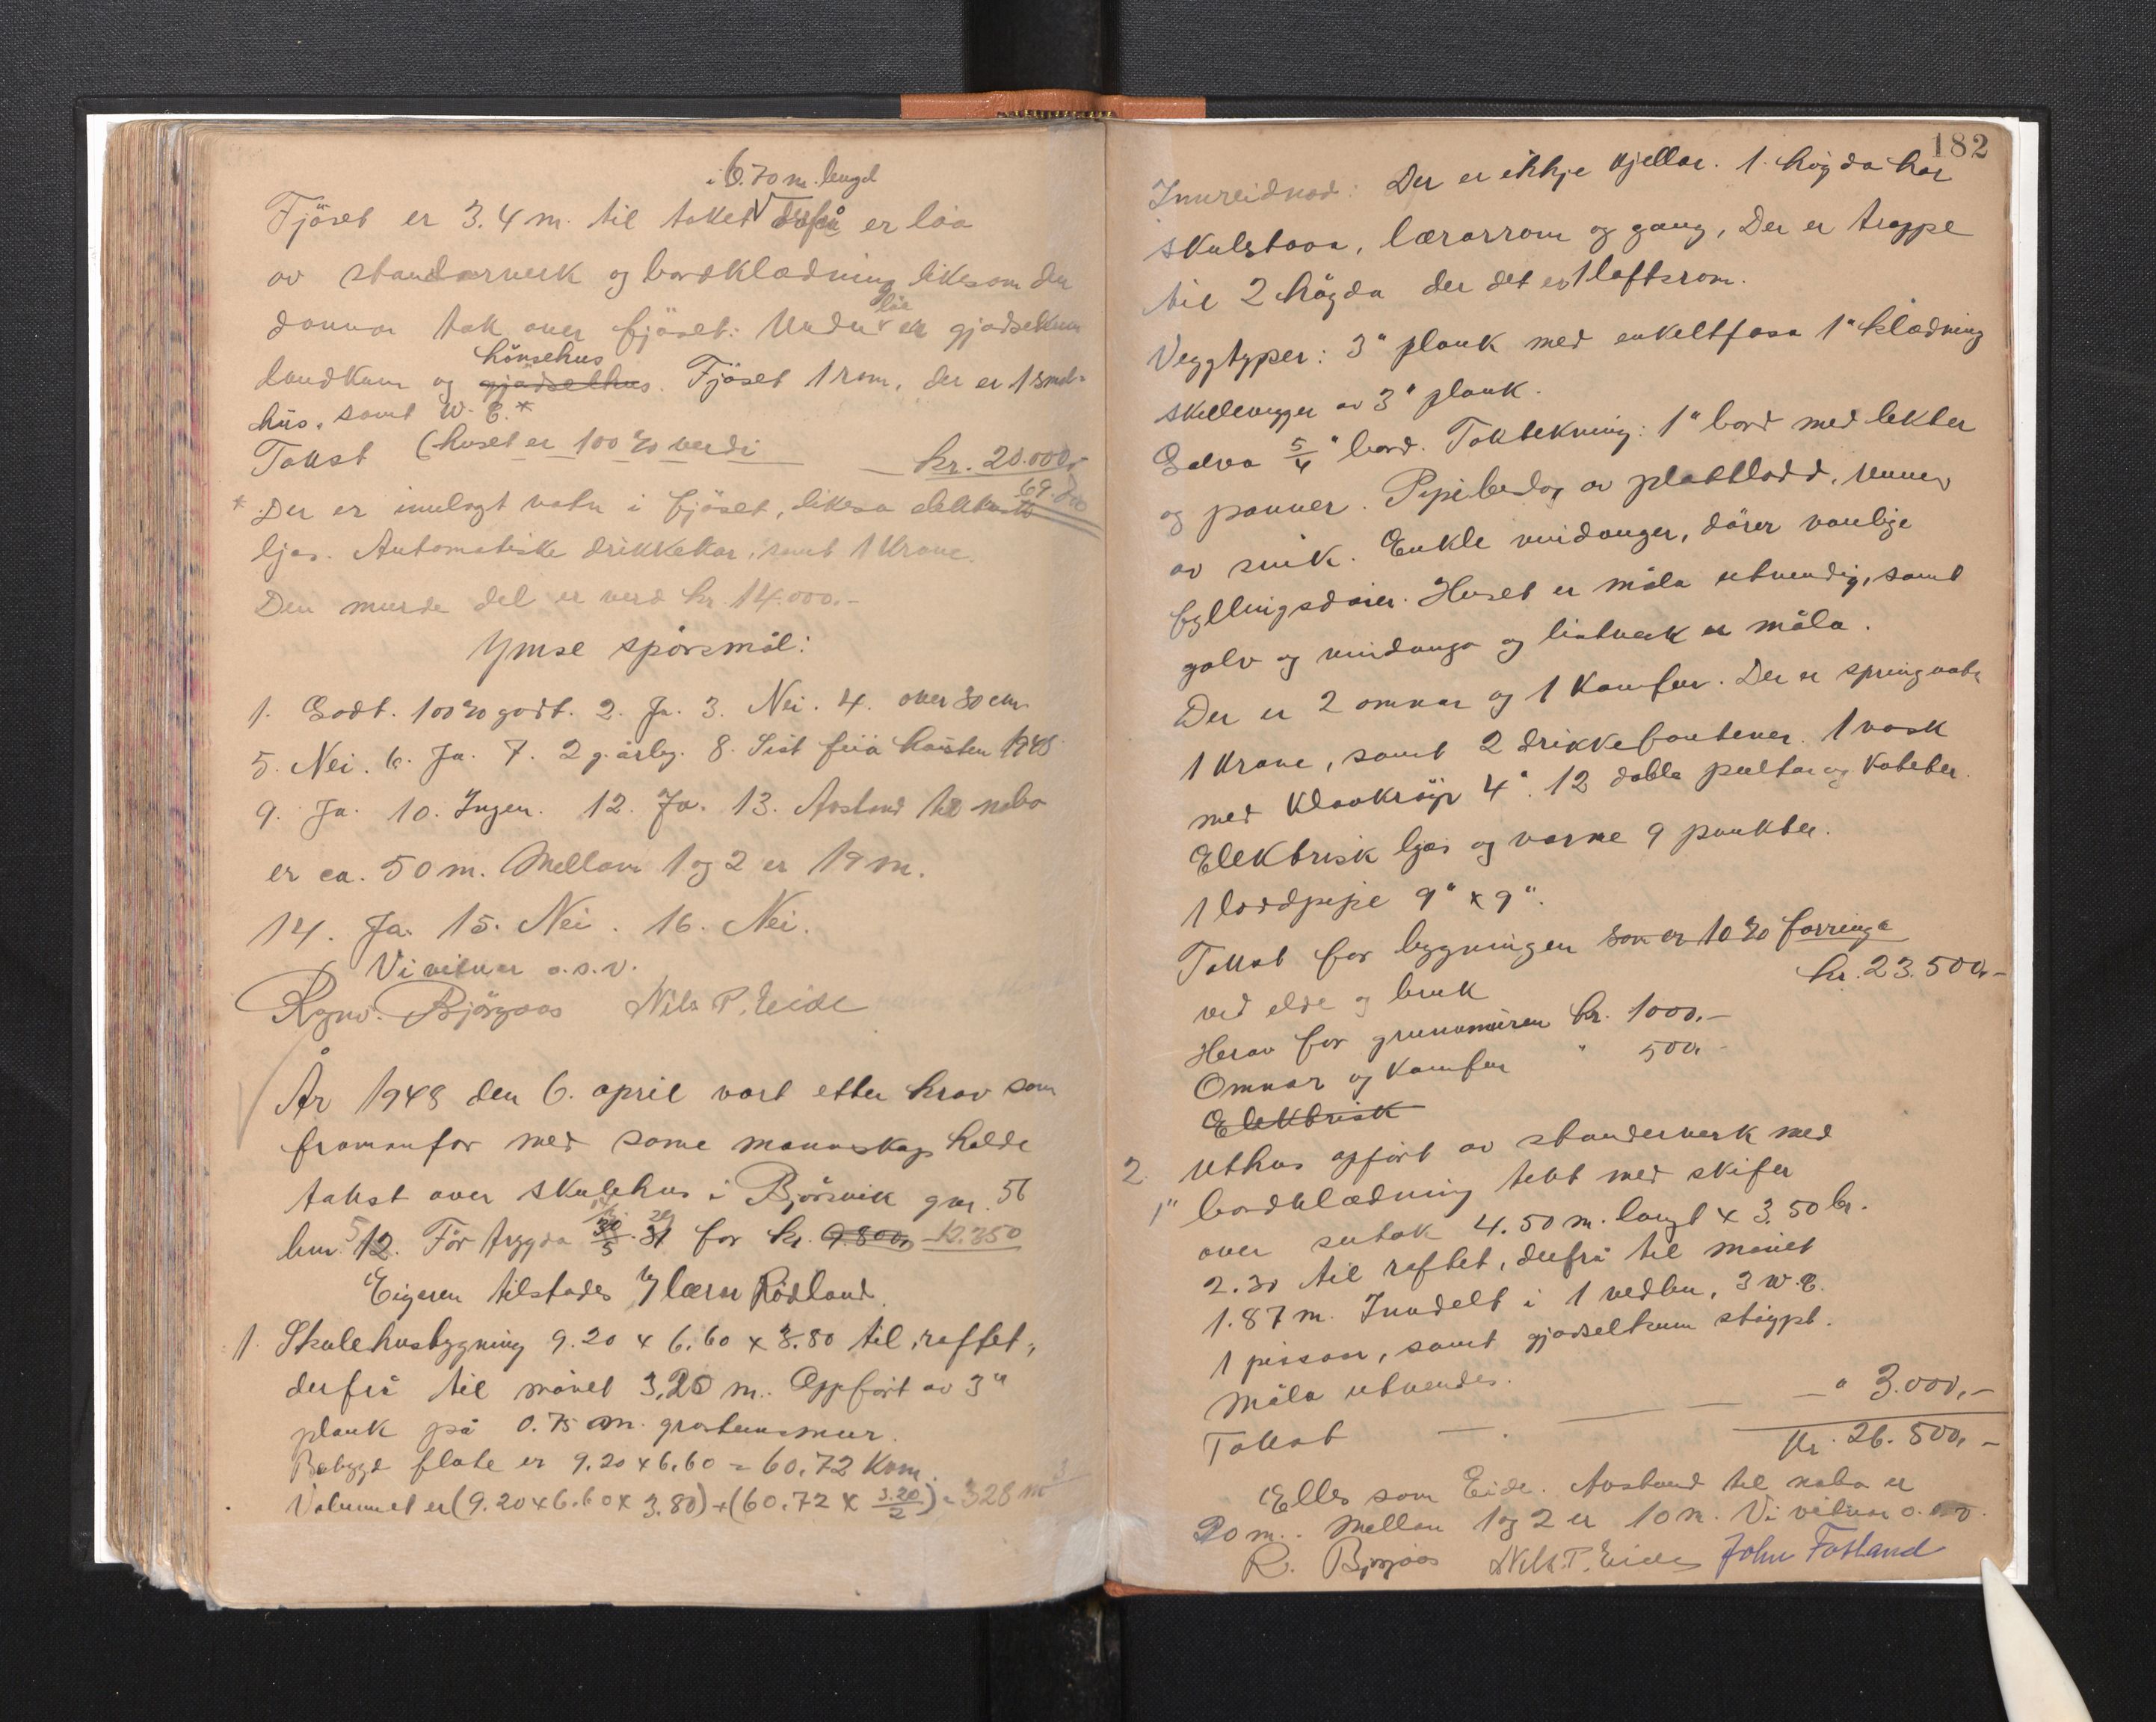 i 6.70 m. lengd
Fjöset er 3.4 m. til taket derfrå er löa
av standarverk og bordklædning likesom den
dannar tak over fjöset. Under löa er gjödselkum
hönsehus
landkum og gjödselhus. Fjöset 1 rom, der er 1 smal-
hus, samt W. C.*
Takst (huset er 100 % verdi kr. 20.000,-
69.800
* Der er innlagt vatn i fjöset, likeså elektrisk
ljos. Automatiske drikkekar, samt 1 Krane.
Den murde del er verd kr. 14.000.-
Ymse spörsmål:
1. Godt. 100 % godt. 2. Ja. 3. Nei. 4. over 30 cm.
5. Nei. 6. Ja. 7. 2 g. årleg. 8. Sist feia hausten 1948
9. Ja. 10. Ingen. 12. Ja. 13. Avstand til nabo
er ca. 50 m. Mellom 1 og 2 er 19 m.
14. Ja. 15. Nei. 16. Nei.
Vi vitnar o.s.v.
Ragnv. Björgaas Nils P. Eide
År 1948 den 6. april vart etter krav som
framanfor med same mannskap halde
takst over skulehus i Björsvik gnr. 56
bnr. 12. För trygda 30/5 31 for kr. 9.800, 12.350
Eigeren tilstades v/ lærer Rödland.
1. Skulehusbygning 9.20 x 6.60 x 3.80 til raftet,
derfrå til mönet 3.20 m. Oppfört av 3"
plank på 0.75 m. gråsteinsmur.
Bebygd flate er 9.20 x 6.60 = 60.72 Kvm.
Volumet er (9.20 x 6.60 x 3.80) + (60.72 x 3.20/2) = 328 m3
182
Innreidnad: Der er ikkje kjellar. 1. högda har
skulstova, lærarrom og gang, Der er trappe
til 2 högda der det er 1 loftsrom.
Veggtyper: 3" plank med enkeltfasa 1" klædning
skillevegger av 3" plank.
Golva 5/4" bord. Taktekning: 1" bord med lekter
og panner. Pipebeslag av plattlodd, renner
av sink. Enkle vindauger, dörer vanlige
fyllingsdörer. Huset er måla utvendig, samt
golv og vindauga og listverk er måla.
Der er 2 omnar og 1 Komfur. Der er springvatn
1 krane, samt 2 drikkefontener. 1 vask
med kloakröyr 4". 12 doble pultar og kateter.
Elektrisk ljos og varme 9 punkter.
1 loddpipe 9" x 9".
Takst for bygningen som er 10 % forringa
ved elde og bruk kr. 23.500,-
Herav for grunnmuren kr. 1000.-
Omnar og Komfur " 500.-
Elektrisk
2. Uthus opfört av standerverk med
1" bordklædning tekt med skifer
over sutak 4.50 m. langt x 3.50 br.
2.30 til raftet, derfrå til mönet
1.87 m. Inndelt i 1 vedbu, 3 W.C.
1 pissoar, samt gjödselkum stöypt.
Måla utvendes.
Takst " 3.000,-
Kr. 26.500,-
Elles som Eide. Avstand til nabo er
20 m. Mellom 1 og 2 er 10 m. Vi vitnar o.s.v.
R. Björgaas Nils P. Eide John Fosland